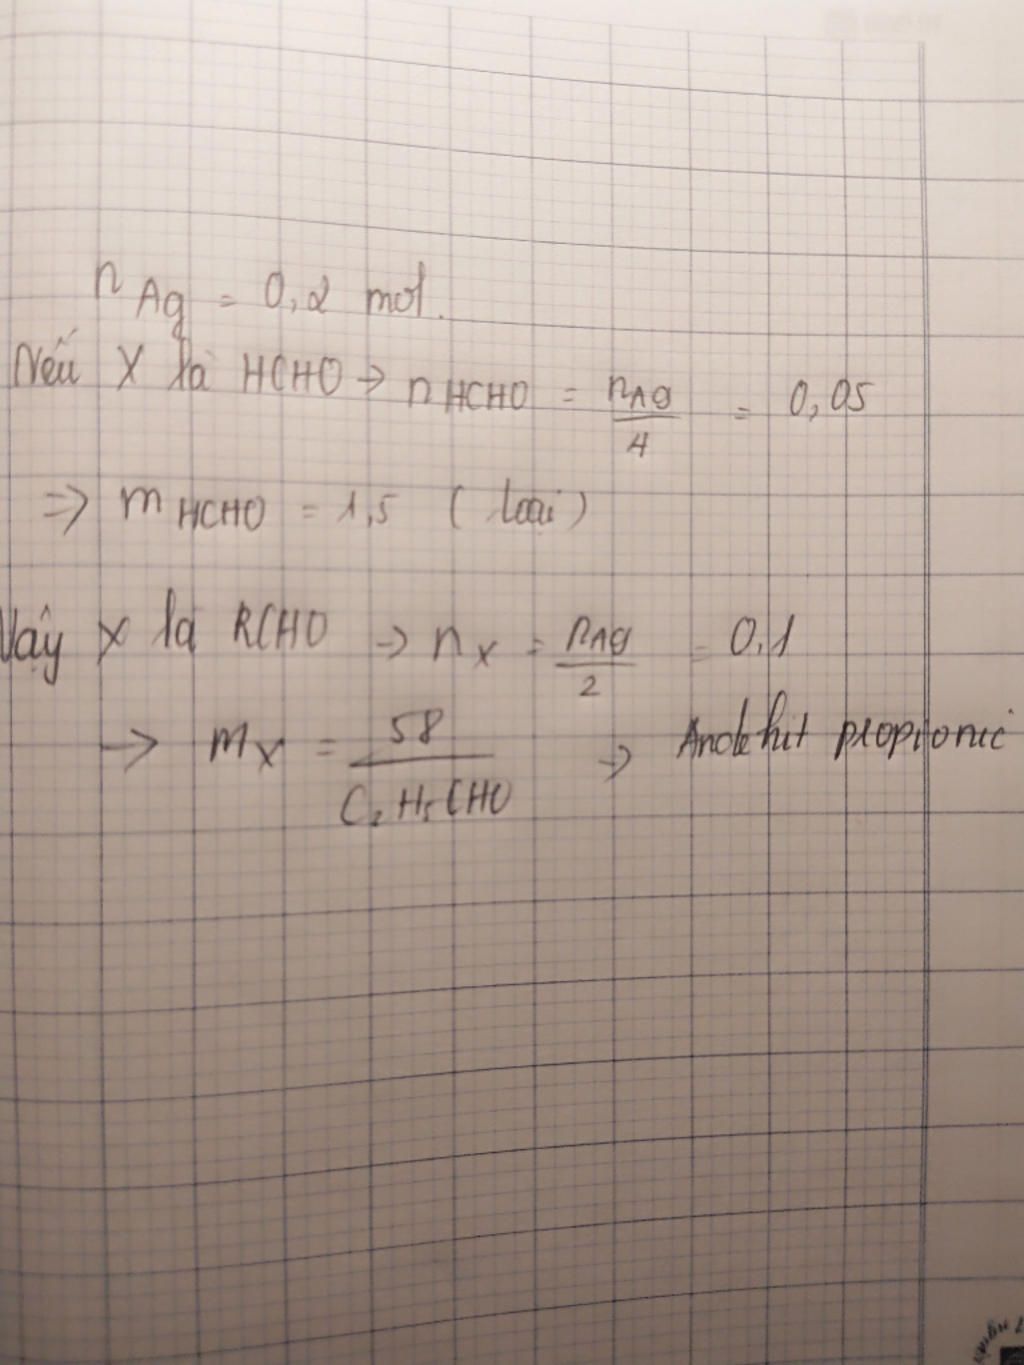 n Ag = 0,2 mol.
Nếu X là HCHO → n HCHO = nAg / 4 = 0,05
⇒ m HCHO = 1,5 (loại)
Vậy X là RCHO → n X = nAg / 2 = 0,1
→ M X = 58 / C2H5CHO → Andehit propionic